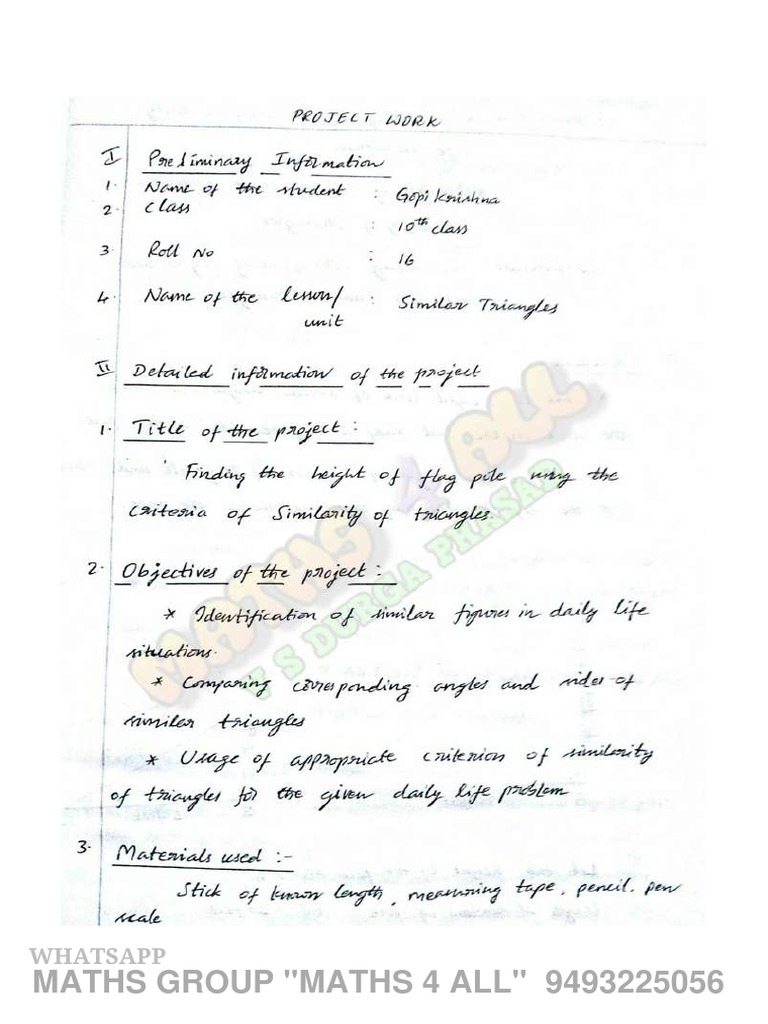 PROJECT WORK
I Preliminary Information
1. Name of the student : Gopi Krishna
2. Class : 10th class
3. Roll No : 16
4. Name of the lesson/ : Similar Triangles
unit
II Detailed information of the project
1. Title of the project :
Finding the height of flag pole using the
criteria of Similarity of triangles.
2. Objectives of the project :-
* Identification of similar figures in daily life
situations.
* Comparing corresponding angles and sides of
similar triangles
* Usage of appropriate criterion of similarity
of triangles for the given daily life problem
3. Materials used :-
Stick of known length, measuring tape, pencil. pen
scale
MATHS 4 ALL
V S DURGA PRASAD
WHATSAPP
MATHS GROUP "MATHS 4 ALL" 9493225056